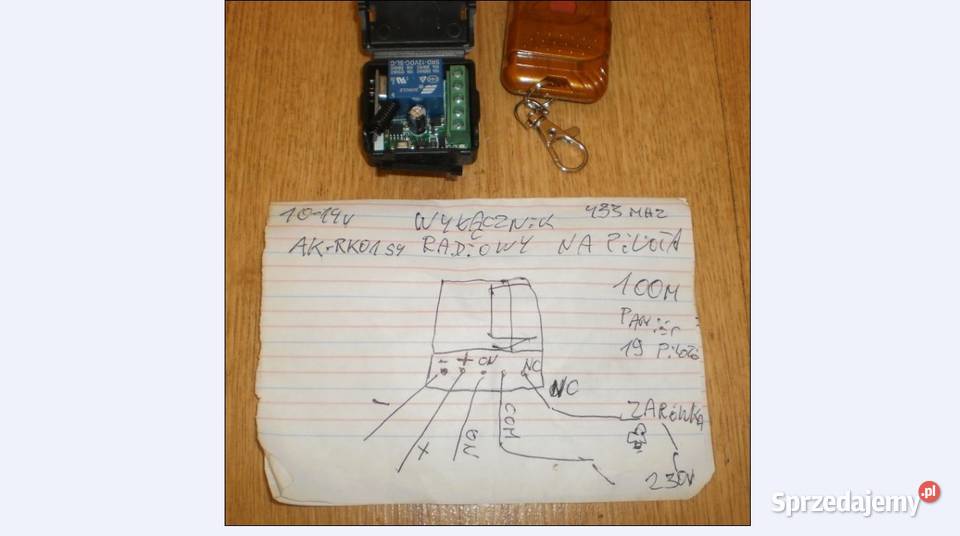 SRD-12VDC-SL-C
10-14V WYŁĘCZNIK 433 MHZ
AK-RK01SY RADIOWY NA PiLOTA
100M
PAMIĘĆ
19 PiLOTÓ
- + ON NC
NC
ŻARÓWKA
- X ON COM
230V
Sprzedajemy.pl